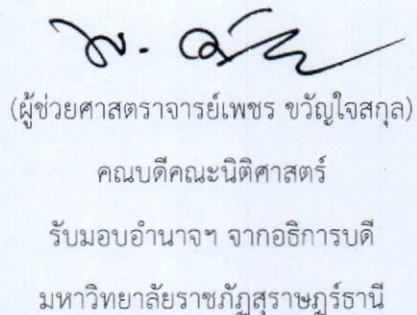 (ผู้ช่วยศาสตราจารย์เพชร ขวัญใจสกุล)
คณบดีคณะนิติศาสตร์
รับมอบอำนาจฯ จากอธิการบดี
มหาวิทยาลัยราชภัฏสุราษฎร์ธานี